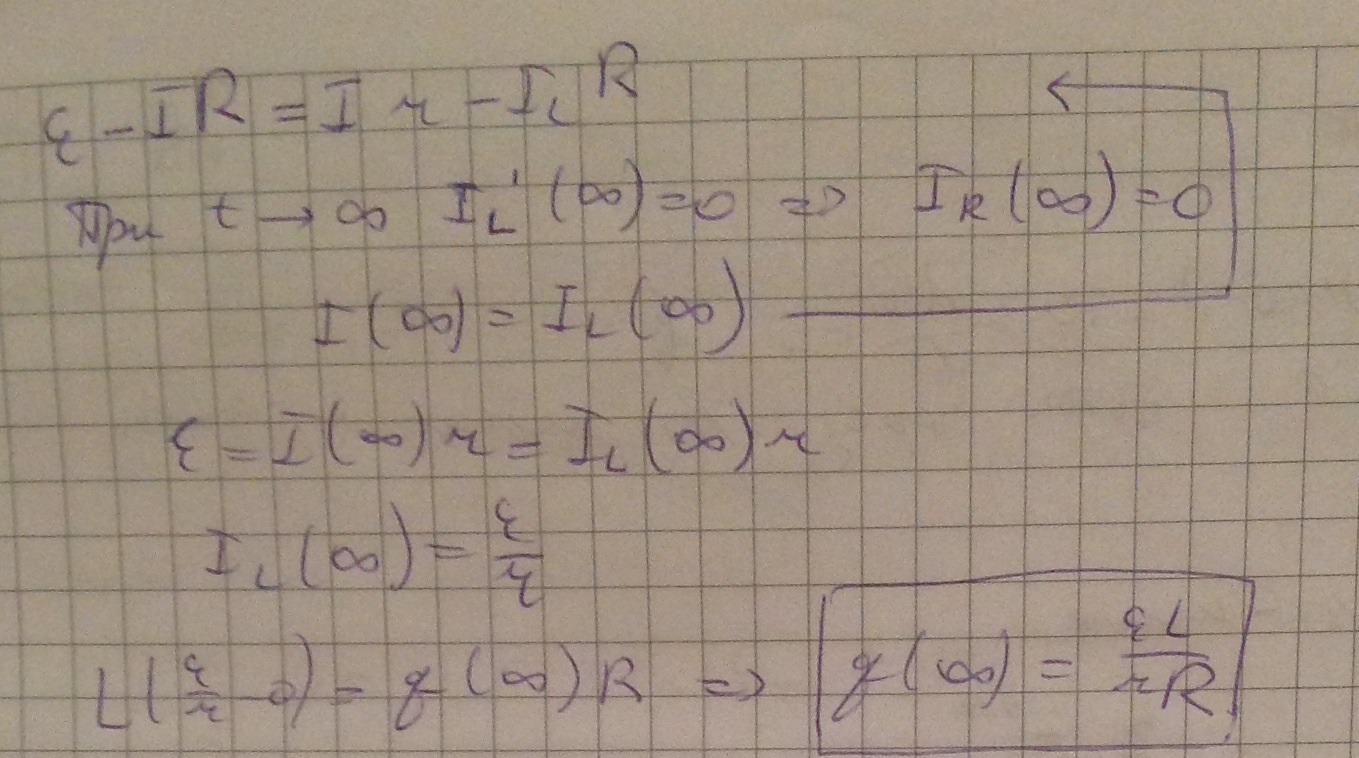 ε − IR = I r − I_L R
При t → ∞ I_L'(∞) = 0 => I_R(∞) = 0
I(∞) = I_L(∞)
ε = I(∞) r = I_L(∞) r
I_L(∞) = ε/r
L(ε/r − 0) = q(∞)R => q(∞) = εL/rR